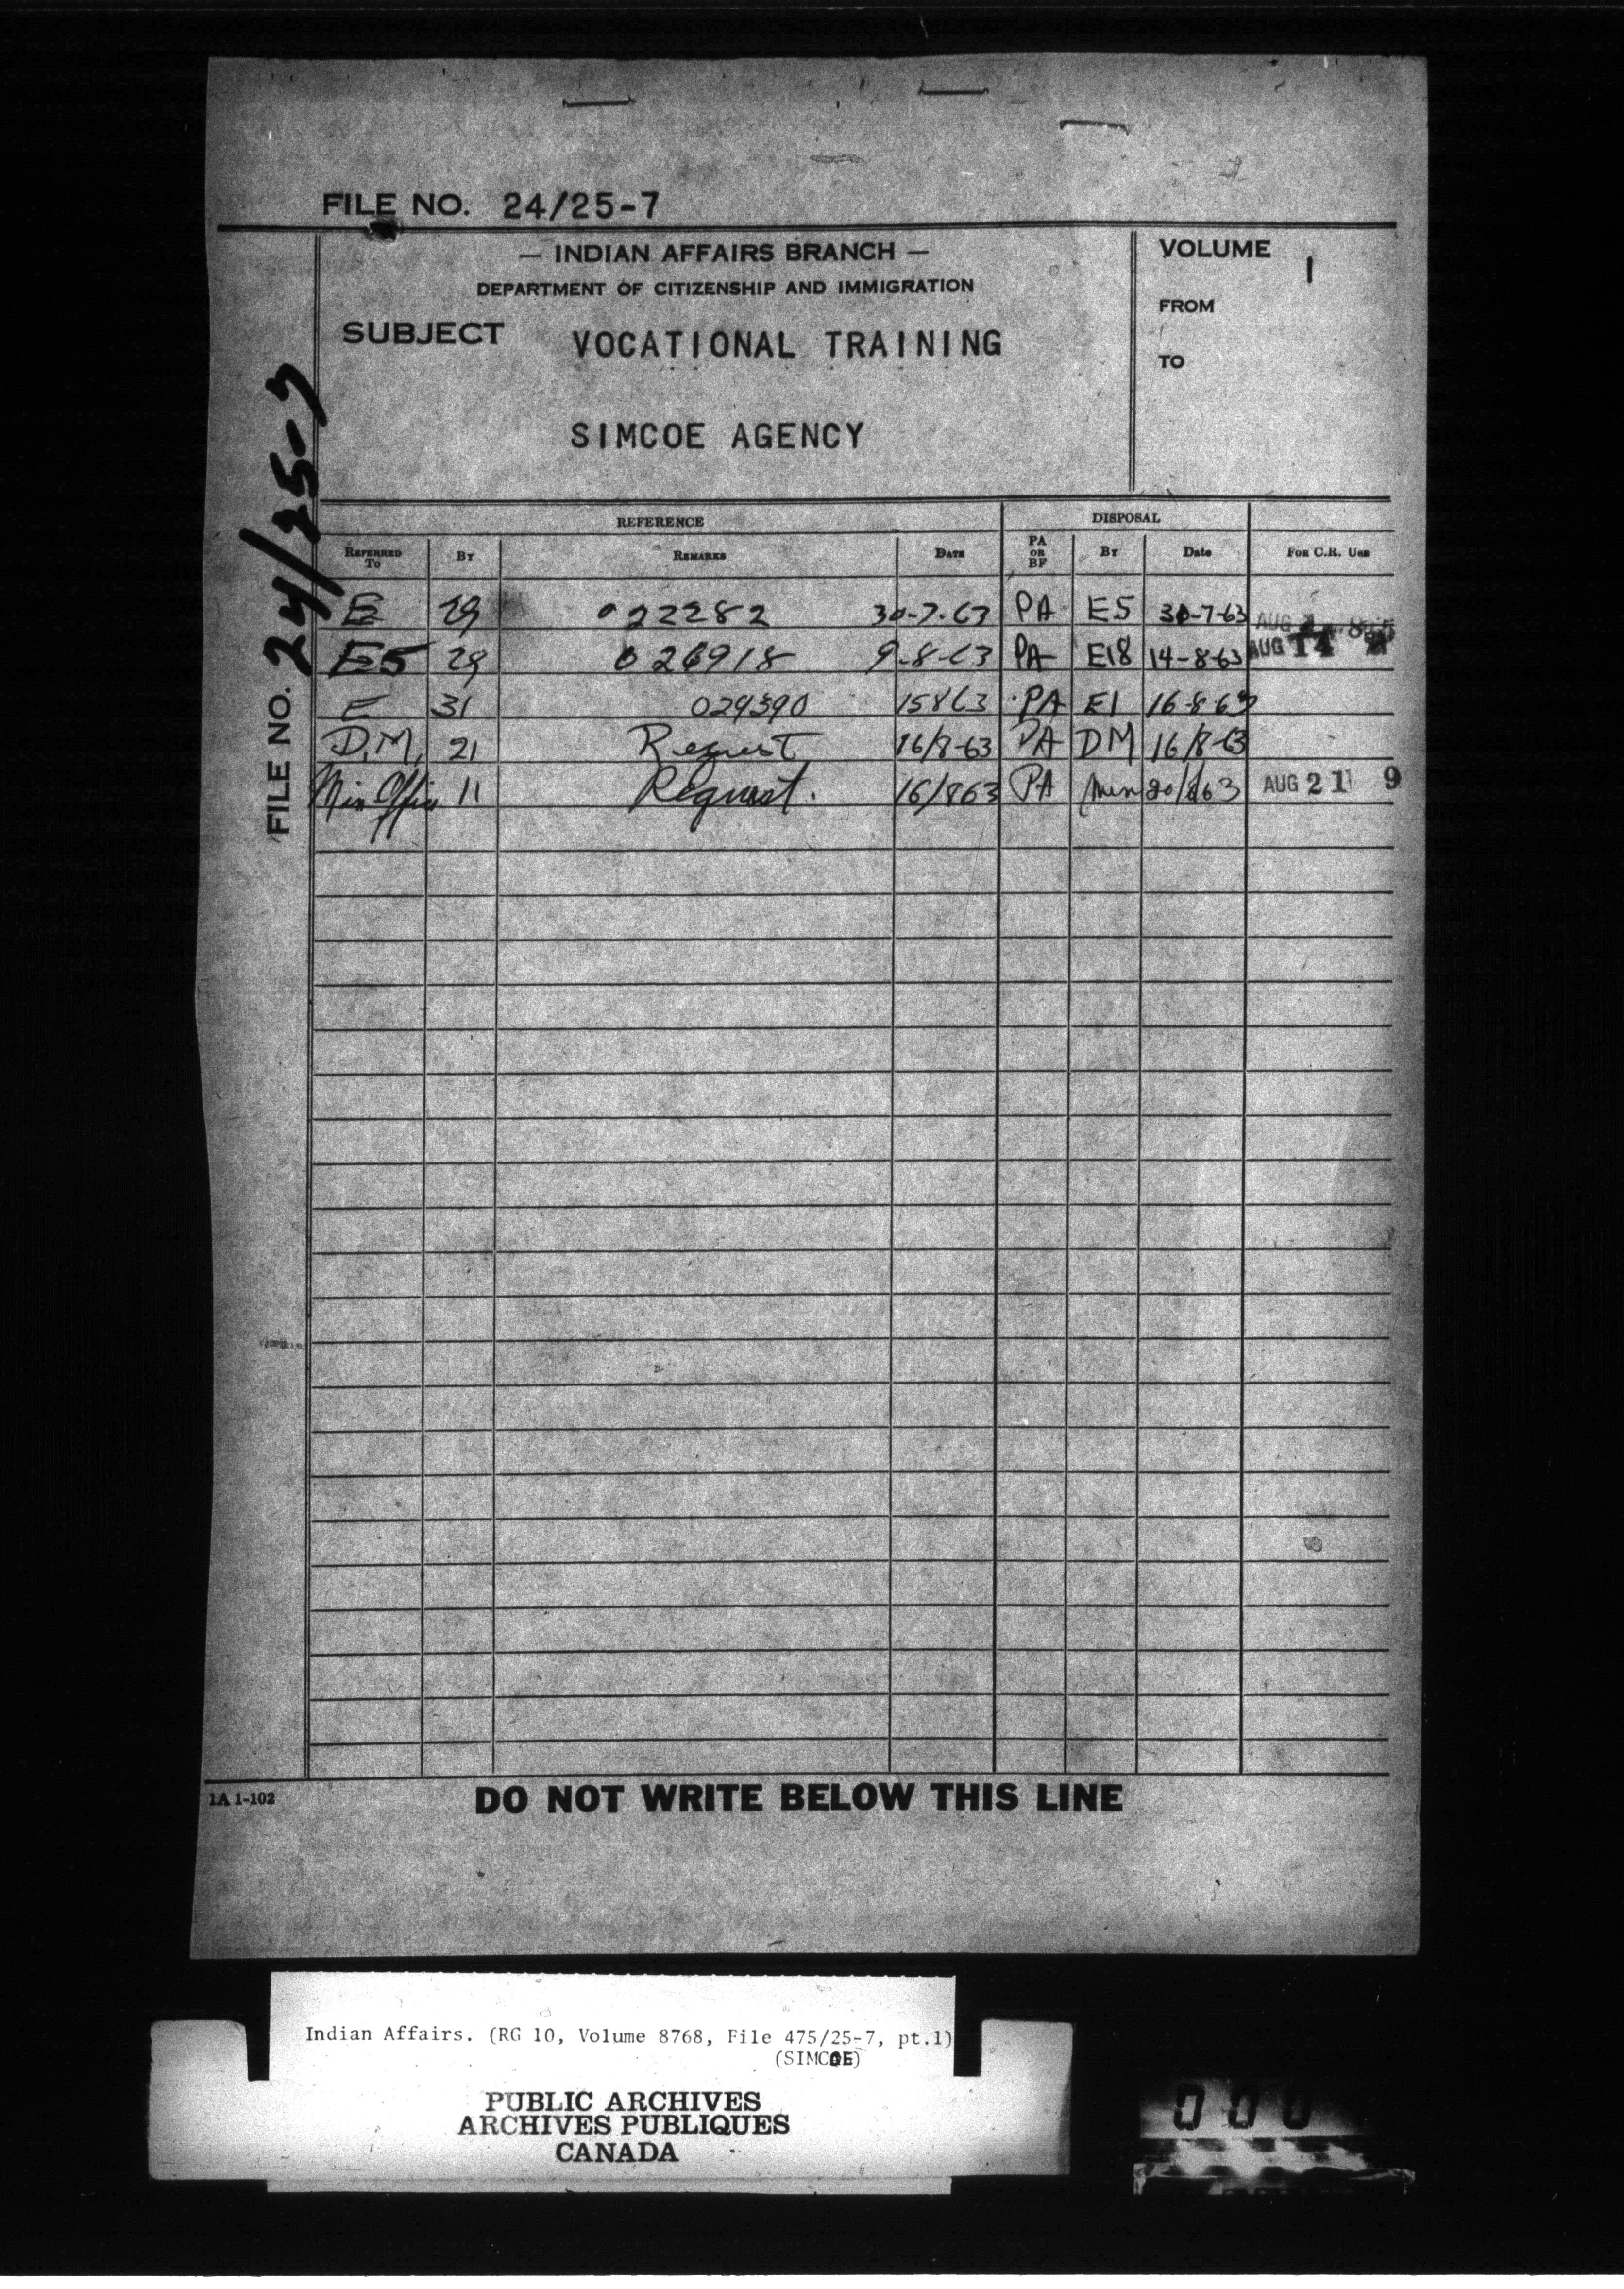 FILE NO. 24/25-7
— INDIAN AFFAIRS BRANCH —
DEPARTMENT OF CITIZENSHIP AND IMMIGRATION
SUBJECT VOCATIONAL TRAINING
SIMCOE AGENCY
VOLUME 1
FROM
TO
FILE NO. 24/25-7
REFERENCE DISPOSAL
REFERRED TO BY REMARKS DATE PA OR BF BY Date FOR C.R. USE
E 29 022282 30-7-63 PA E5 30-7-63 AUG
E5 29 026918 9-8-63 PA E18 14-8-63 AUG 14
E 31 029390 15863 PA E1 16-8-63
D.M. 21 Request 16/8-63 PA DM 16/8-63
Min Office 11 Request. 16/863 PA Min 20/863 AUG 21 9
1A 1-102
DO NOT WRITE BELOW THIS LINE
Indian Affairs. (RG 10, Volume 8768, File 475/25-7, pt.1)
(SIMCOE)
PUBLIC ARCHIVES
ARCHIVES PUBLIQUES
CANADA
000